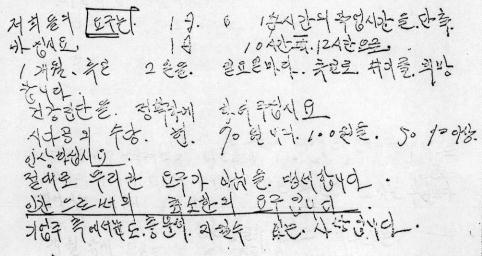 저희들의 요구는 1일 14시간의 작업시간을 단축
하십시요. 1일 10시간 12시간으로.
1개월. 휴일 2일을. 일요일마다. 휴일로. 쉬기를. 희망
합니다.
건강진단을. 정확하게 하여 주십시요
시다공의 수당. 현. 70원 100원을. 50% 이상.
인상하십시요
절대로 무리한 요구가 아님을. 맹세합니다.
인간으로서의 최소한의 요구입니다.
기업주 측에서도. 충분히. 지킬수 있는. 사항입니다.